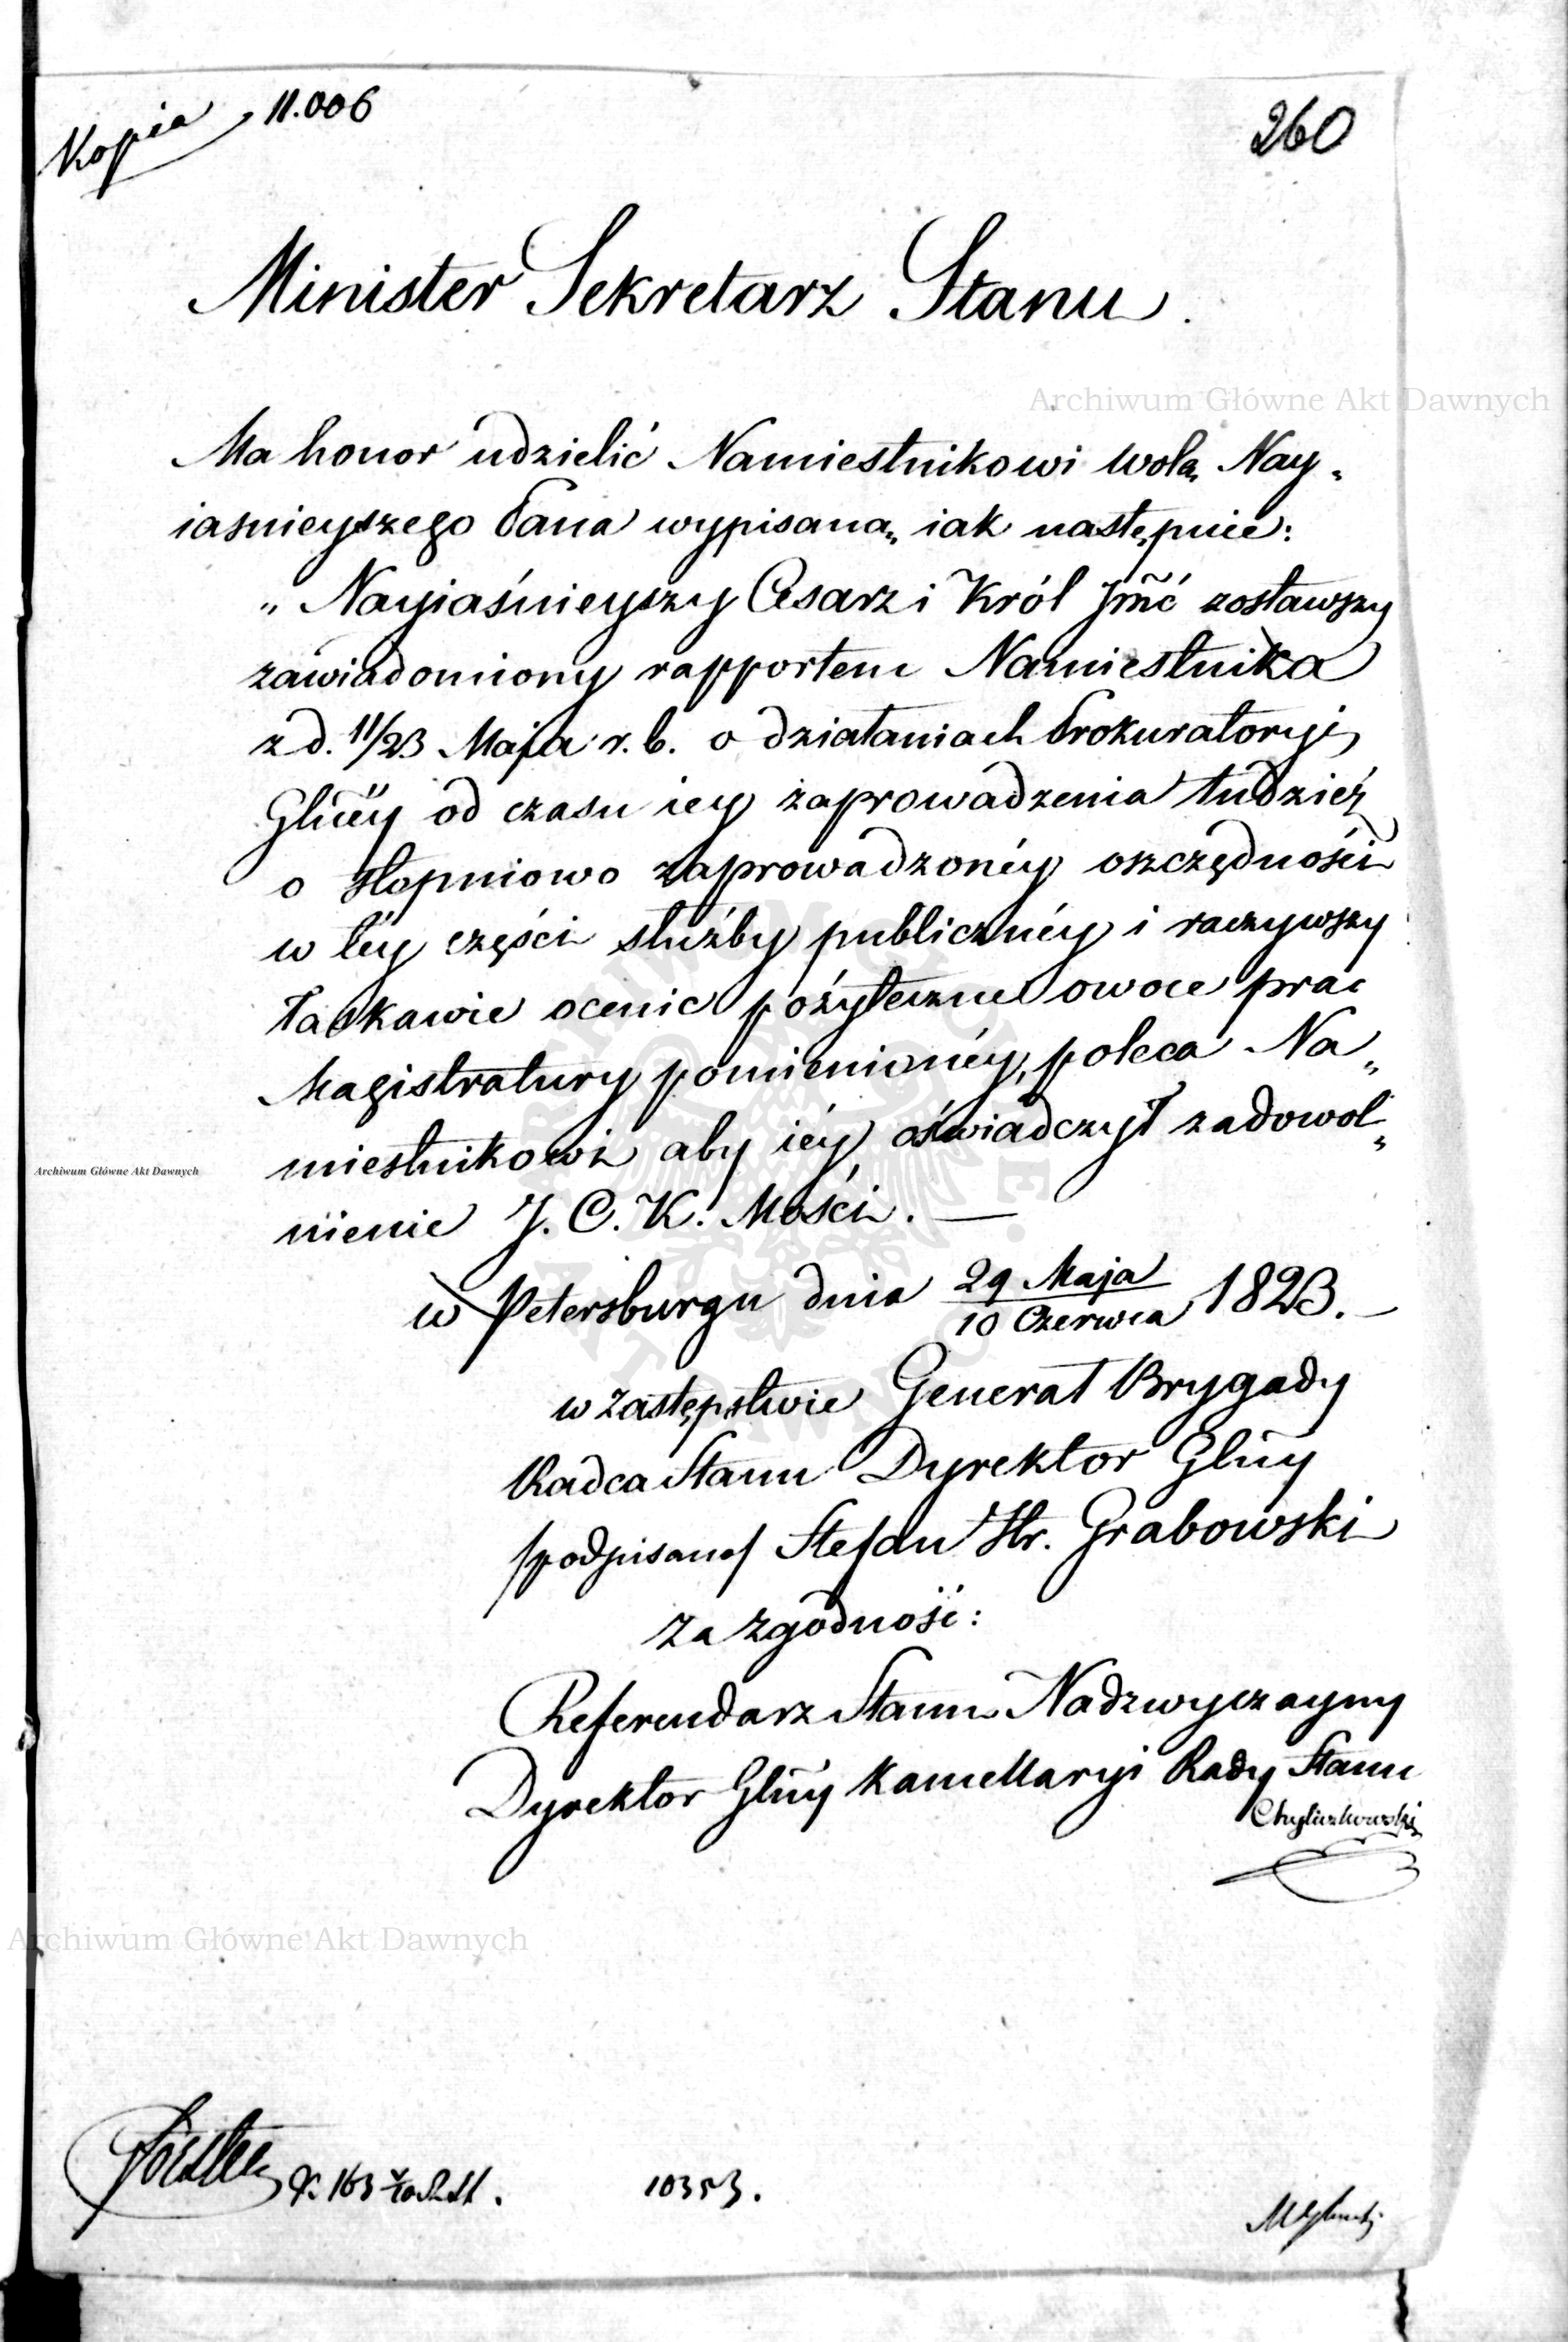 Kopia 11.006
260
Minister Sekretarz Stanu.
Ma honor udzielić Namiestnikowi wolą Nay„
iaśnieyszego Pana wypisaną, iak następuie:
„Nayiaśnieyszy Cesarz i Król Jmć zostawszy
zawiadomiony rapportem Namiestnika
z d. 11/23 Maja r. b. o działaniach Prokuratoryi
Głnéy od czasu iey zaprowadzenia tudzież
o stopniowo zaprowadzonéy oszczędności
w téy części służby publicznéy i raczywszy
łaskawie ocenić pożyteczne owoce prac
Magistratury pomienionéy, poleca Na„
miestnikowi aby iéy oświadczył zadowol„
nienie J. C. K. Mości. —
w Petersburgu dnia 29 Maja / 10 Czerwca 1823. —
w zastępstwie Generał Brygady
Radca Stanu Dyrektor Głny
/podpisano/ Stefan Hr. Grabowski
Za zgodność:
Referendarz Stanu Nadzwyczayny
Dyrektor Głny Kancellaryi Rady Stanu
10353.
Archiwum Główne Akt Dawnych
Archiwum Główne Akt Dawnych
Archiwum Główne Akt Dawnych